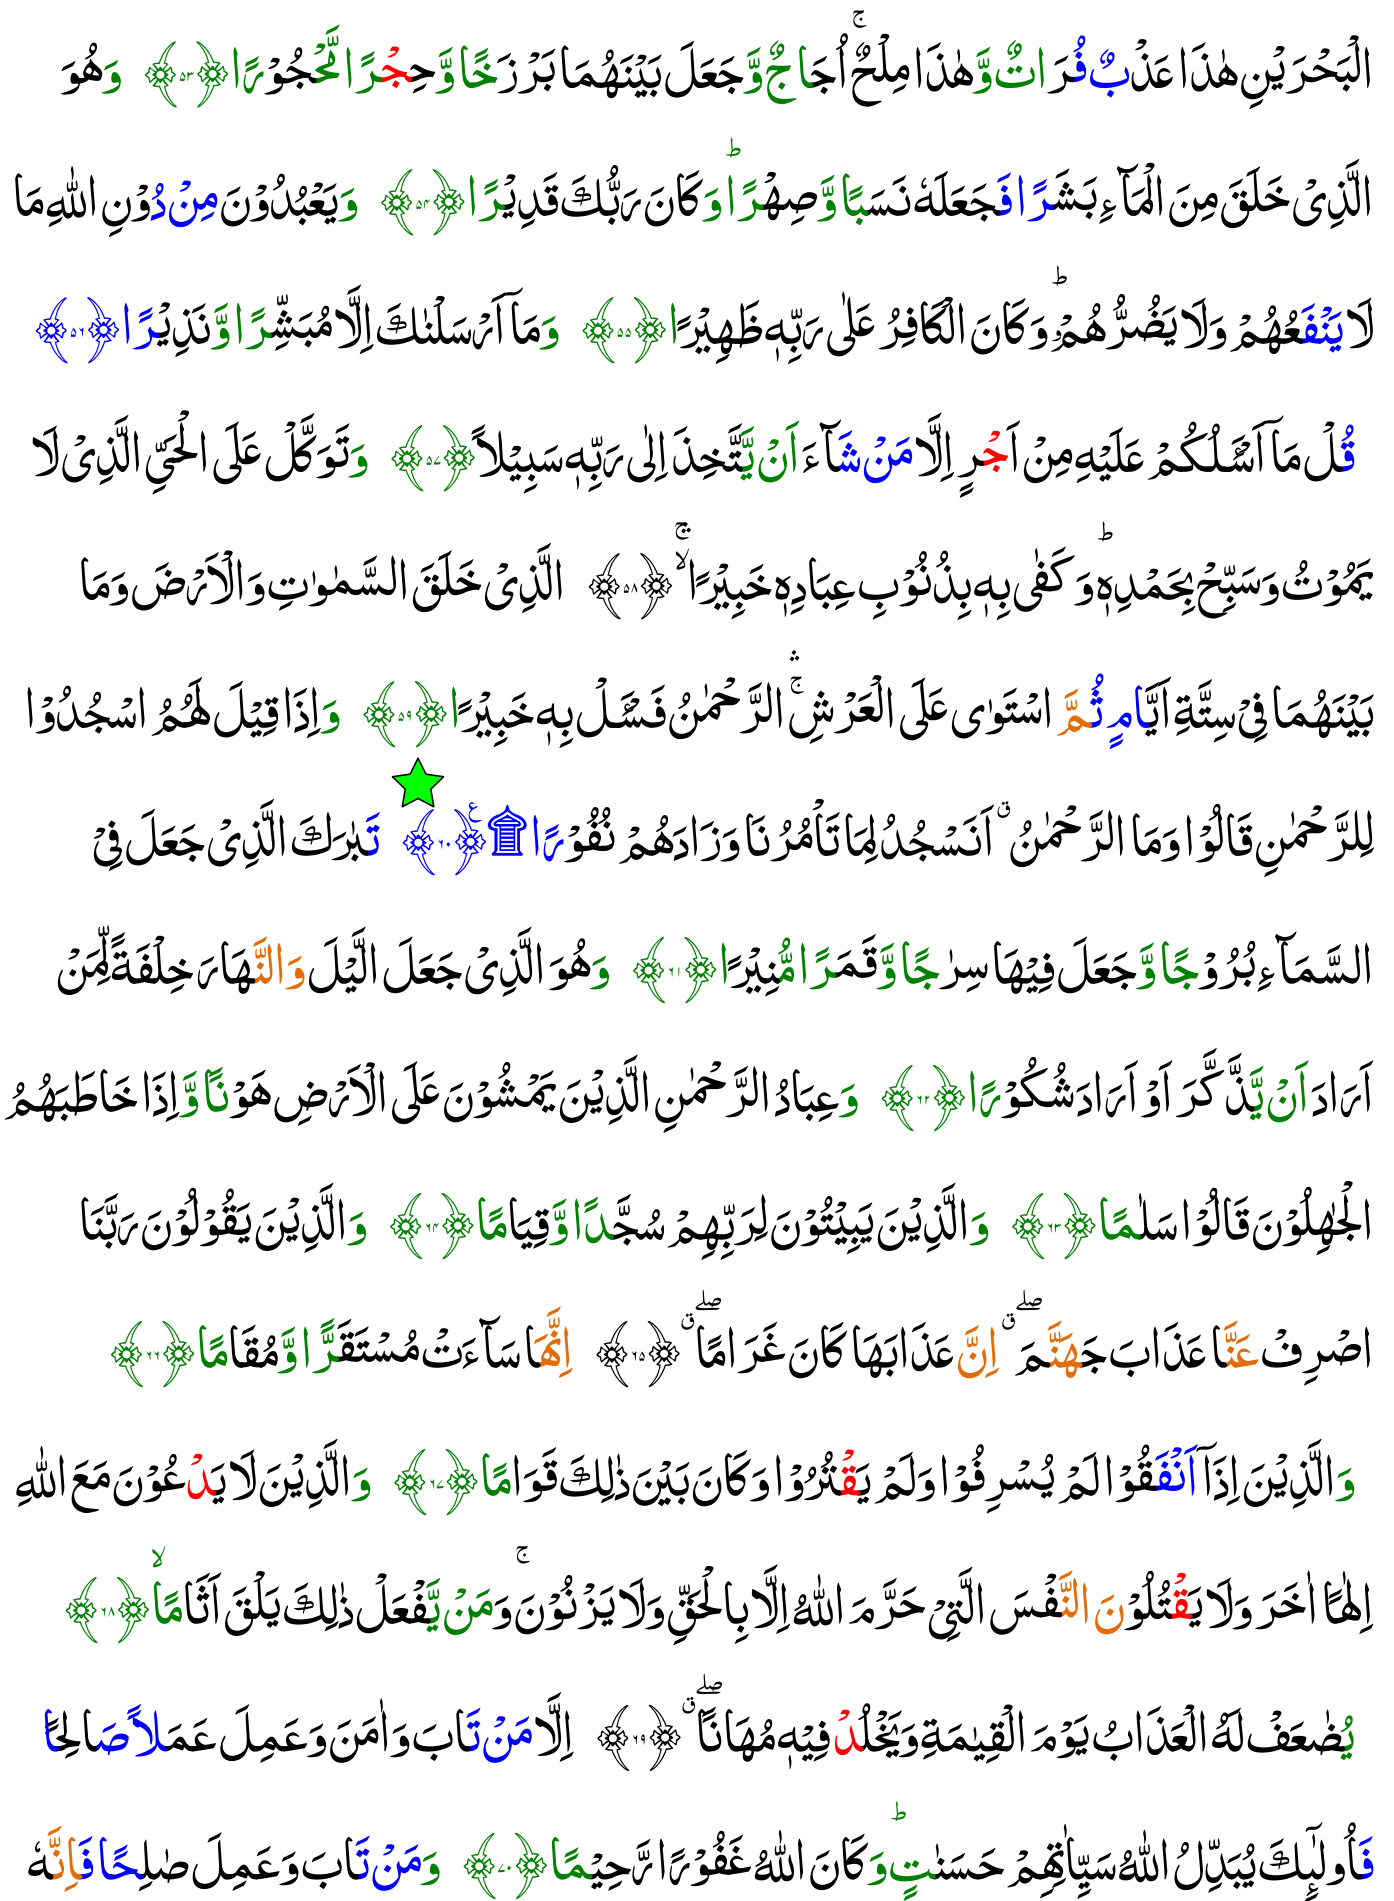 الْبَحْرَيْنِ هٰذَا عَذْبٌ فُرَاتٌ وَّهٰذَا مِلْحٌ اُجَاجٌ ۚ وَّجَعَلَ بَيْنَهُمَا بَرْزَخًا وَّحِجْرًا مَّحْجُوْرًا ﴿۵۳﴾ وَهُوَ
الَّذِىْ خَلَقَ مِنَ الْمَآءِ بَشَرًا فَجَعَلَهٗ نَسَبًا وَّصِهْرًا ؕ وَكَانَ رَبُّكَ قَدِيْرًا ﴿۵۴﴾ وَيَعْبُدُوْنَ مِنْ دُوْنِ اللّٰهِ مَا
لَا يَنْفَعُهُمْ وَلَا يَضُرُّهُمْ ؕ وَكَانَ الْكَافِرُ عَلٰى رَبِّهٖ ظَهِيْرًا ﴿۵۵﴾ وَمَاۤ اَرْسَلْنٰكَ اِلَّا مُبَشِّرًا وَّنَذِيْرًا ﴿۵۶﴾
قُلْ مَاۤ اَسْـَٔلُكُمْ عَلَيْهِ مِنْ اَجْرٍ اِلَّا مَنْ شَآءَ اَنْ يَّتَّخِذَ اِلٰى رَبِّهٖ سَبِيْلاً ﴿۵۷﴾ وَتَوَكَّلْ عَلَى الْحَىِّ الَّذِىْ لَا
يَمُوْتُ وَسَبِّحْ بِحَمْدِهٖ ؕ وَكَفٰى بِهٖ بِذُنُوْبِ عِبَادِهٖ خَبِيْرًا ۙۛۚ ﴿۵۸﴾ الَّذِىْ خَلَقَ السَّمٰوٰتِ وَالْاَرْضَ وَمَا
بَيْنَهُمَا فِىْ سِتَّةِ اَيَّامٍ ثُمَّ اسْتَوٰى عَلَى الْعَرْشِ ۛۚ الرَّحْمٰنُ فَسْـَٔـلْ بِهٖ خَبِيْرًا ﴿۵۹﴾ وَاِذَا قِيْلَ لَهُمُ اسْجُدُوْا
لِلرَّحْمٰنِ قَالُوْا وَمَا الرَّحْمٰنُ ۗ اَنَسْجُدُ لِمَا تَاْمُرُنَا وَزَادَهُمْ نُفُوْرًا ۩ ﴿۶۰﴾ ع تَبٰرَكَ الَّذِىْ جَعَلَ فِىْ
السَّمَآءِ بُرُوْجًا وَّجَعَلَ فِيْهَا سِرٰجًا وَّقَمَرًا مُّنِيْرًا ﴿۶۱﴾ وَهُوَ الَّذِىْ جَعَلَ الَّيْلَ وَالنَّهَارَ خِلْفَةً لِّمَنْ
اَرَادَ اَنْ يَّذَّكَّرَ اَوْ اَرَادَ شُكُوْرًا ﴿۶۲﴾ وَعِبَادُ الرَّحْمٰنِ الَّذِيْنَ يَمْشُوْنَ عَلَى الْاَرْضِ هَوْنًا وَّاِذَا خَاطَبَهُمُ
الْجٰهِلُوْنَ قَالُوْا سَلٰمًا ﴿۶۳﴾ وَالَّذِيْنَ يَبِيْتُوْنَ لِرَبِّهِمْ سُجَّدًا وَّقِيَامًا ﴿۶۴﴾ وَالَّذِيْنَ يَقُوْلُوْنَ رَبَّنَا
اصْرِفْ عَنَّا عَذَابَ جَهَنَّمَ ۖق اِنَّ عَذَابَهَا كَانَ غَرَامًا ۖق ﴿۶۵﴾ اِنَّهَا سَآءَتْ مُسْتَقَرًّا وَّمُقَامًا ﴿۶۶﴾
وَالَّذِيْنَ اِذَاۤ اَنْفَقُوْا لَمْ يُسْرِفُوْا وَلَمْ يَقْتُرُوْا وَكَانَ بَيْنَ ذٰلِكَ قَوَامًا ﴿۶۷﴾ وَالَّذِيْنَ لَا يَدْعُوْنَ مَعَ اللّٰهِ
اِلٰهًا اٰخَرَ وَلَا يَقْتُلُوْنَ النَّفْسَ الَّتِىْ حَرَّمَ اللّٰهُ اِلَّا بِالْحَقِّ وَلَا يَزْنُوْنَ ۚ وَمَنْ يَّفْعَلْ ذٰلِكَ يَلْقَ اَثَامًا ۙ ﴿۶۸﴾
يُضٰعَفْ لَهُ الْعَذَابُ يَوْمَ الْقِيٰمَةِ وَيَخْلُدْ فِيْهٖ مُهَانًا ۖق ﴿۶۹﴾ اِلَّا مَنْ تَابَ وَاٰمَنَ وَعَمِلَ عَمَلاً صَالِحًا
فَاُولٰٓٮِٕكَ يُبَدِّلُ اللّٰهُ سَيِّاٰتِهِمْ حَسَنٰتٍ ؕ وَكَانَ اللّٰهُ غَفُوْرًا رَّحِيْمًا ﴿۷۰﴾ وَمَنْ تَابَ وَعَمِلَ صٰلِحًا فَاِنَّهٗ